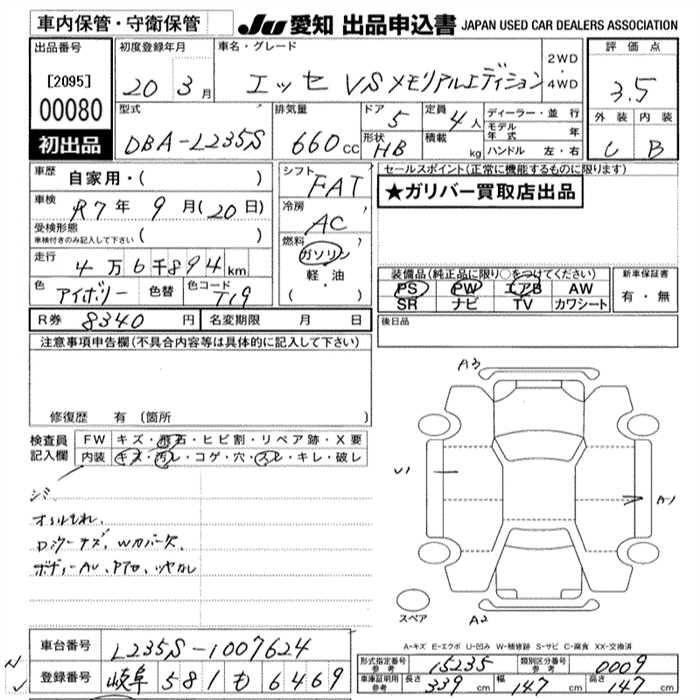 車内保管・守衛保管
JU 愛知 出品申込書 JAPAN USED CAR DEALERS ASSOCIATION
出品番号
[2095]
00080
初出品
初度登録年月
20 3月
車名・グレード
エッセ VSメモリアルエディション
2WD
・
4WD
評価点
3.5
型式
DBA-L235S
排気量
660cc
ドア
5
定員
4人
形状
HB
積載
kg
ディーラー・並行
モデル年式 年
ハンドル 左・右
外装 内装
C B
車歴
自家用・( )
車検
R7年 9月(20日)
受検形態
車検付きのみ記入して下さい ( )
走行
4万6千894km
色
アイボリー
色替
色コード
T19
シフト
FAT
冷房
AC
燃料
ガソリン
軽・油
( )
セールスポイント(正常に機能するものに限ります)
★ガリバー買取店出品
装備品(純正品に限り○をつけてください)
PS PW エアB AW
SR ナビ TV カワシート
新車保証書
有・無
R券 8340 円
名変期限 月 日
後日品
注意事項申告欄(不具合内容等は具体的に記入して下さい)
修復歴 有(箇所 )
検査員記入欄
FW キズ・飛石・ヒビ割・リペア跡・X要
内装 キズ・汚レ・コゲ・穴・スレ・キレ・破レ
シミ
ボディーAU、
A3
U1
A1
A2
スペア
A-キズ E-エクボ U-凹み W-補修跡 S-サビ C-腐食 XX-交換済
車台番号
L235S-1007624
登録番号
岐阜 581 も 6469
形式指定番号
参考
15235
類別区分番号
参考
0009
車庫証明用
参考
長さ 339cm
幅 147cm
高さ 147cm